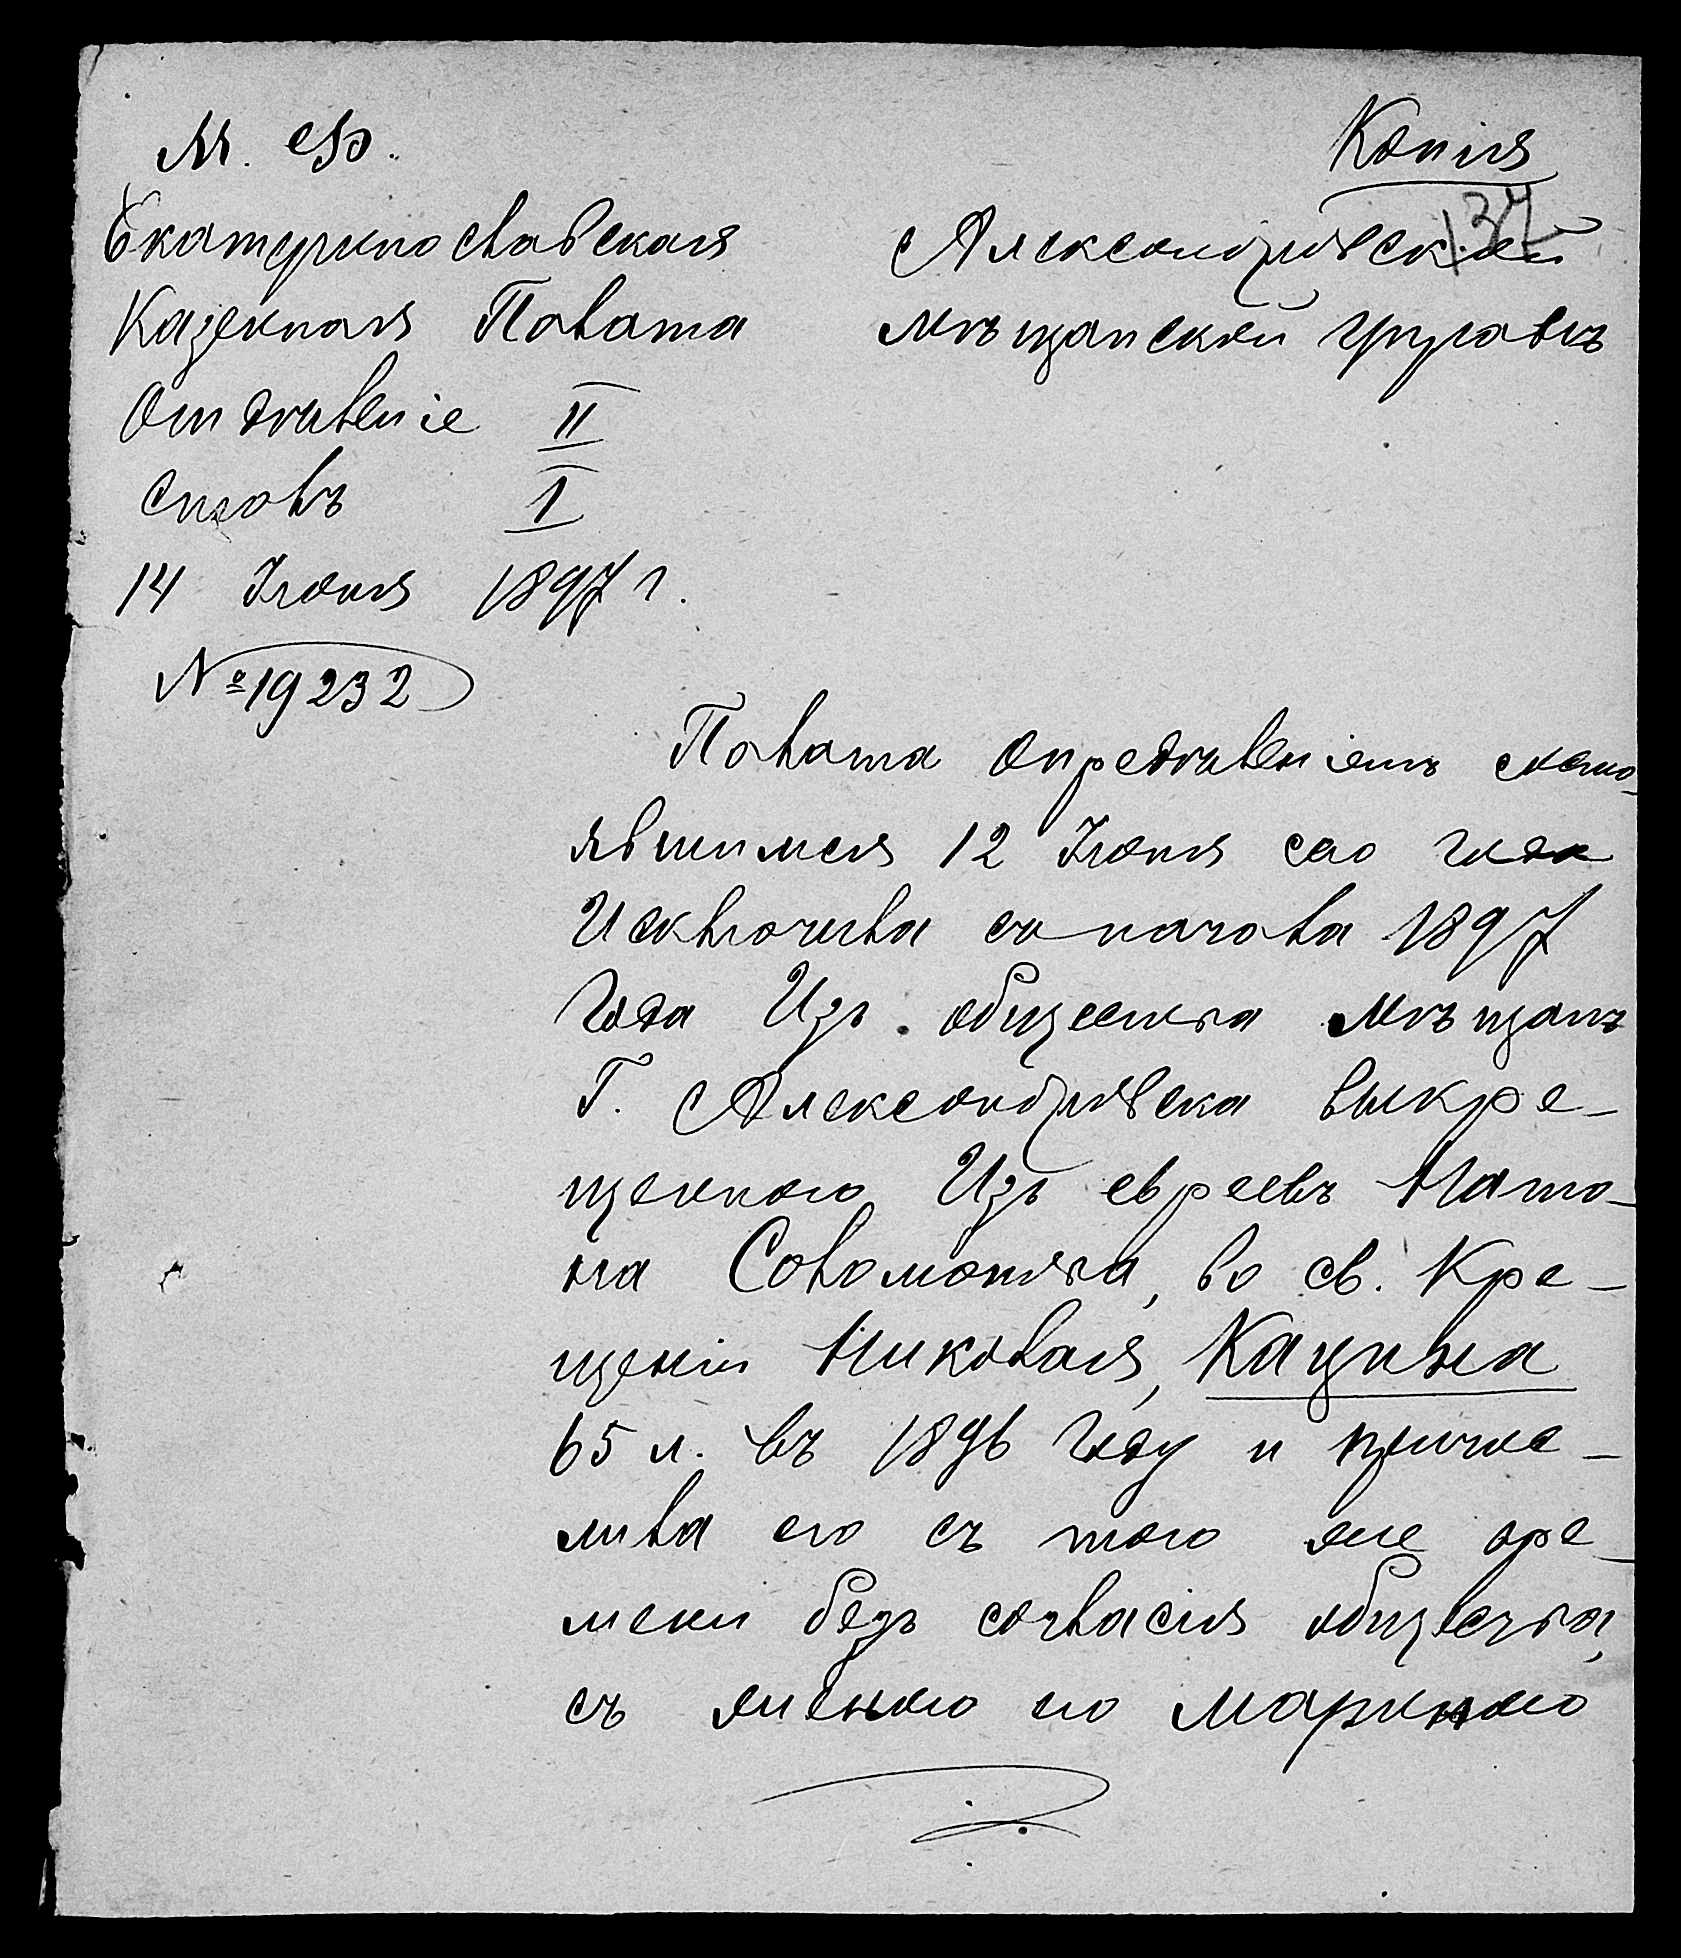 М. Ф.
Копія
137
Екатеринославская
Казенная Палата
Отдѣленіе II
Столъ I
14 Іюня 1897 г.
№ 19232
Александровской
мѣщанской управѣ
Палата опредѣленіемъ состо-
явшимся 12 Іюня сего года
Исключила съ начала 1897
года Изъ общества мѣщанъ
Г. Александровска выкре-
щеннаго Изъ евреевъ Ната-
на Соломонова, во св. Кре-
щеніи Николая, Кацина
65 л. въ 1896 году и причис-
лила его съ того же вре-
мени безъ согласія общества,
съ женою его Мариною